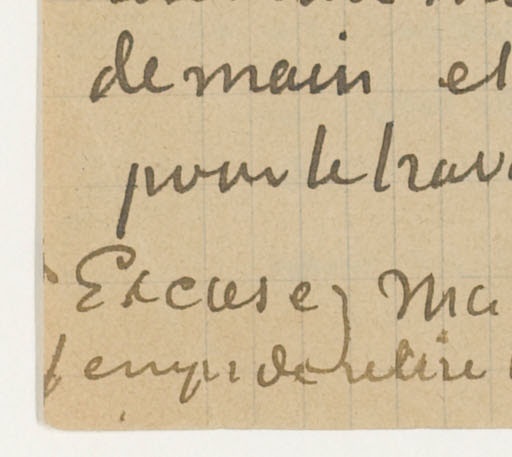 demain et
pour le trav
Excusez ma
de relire